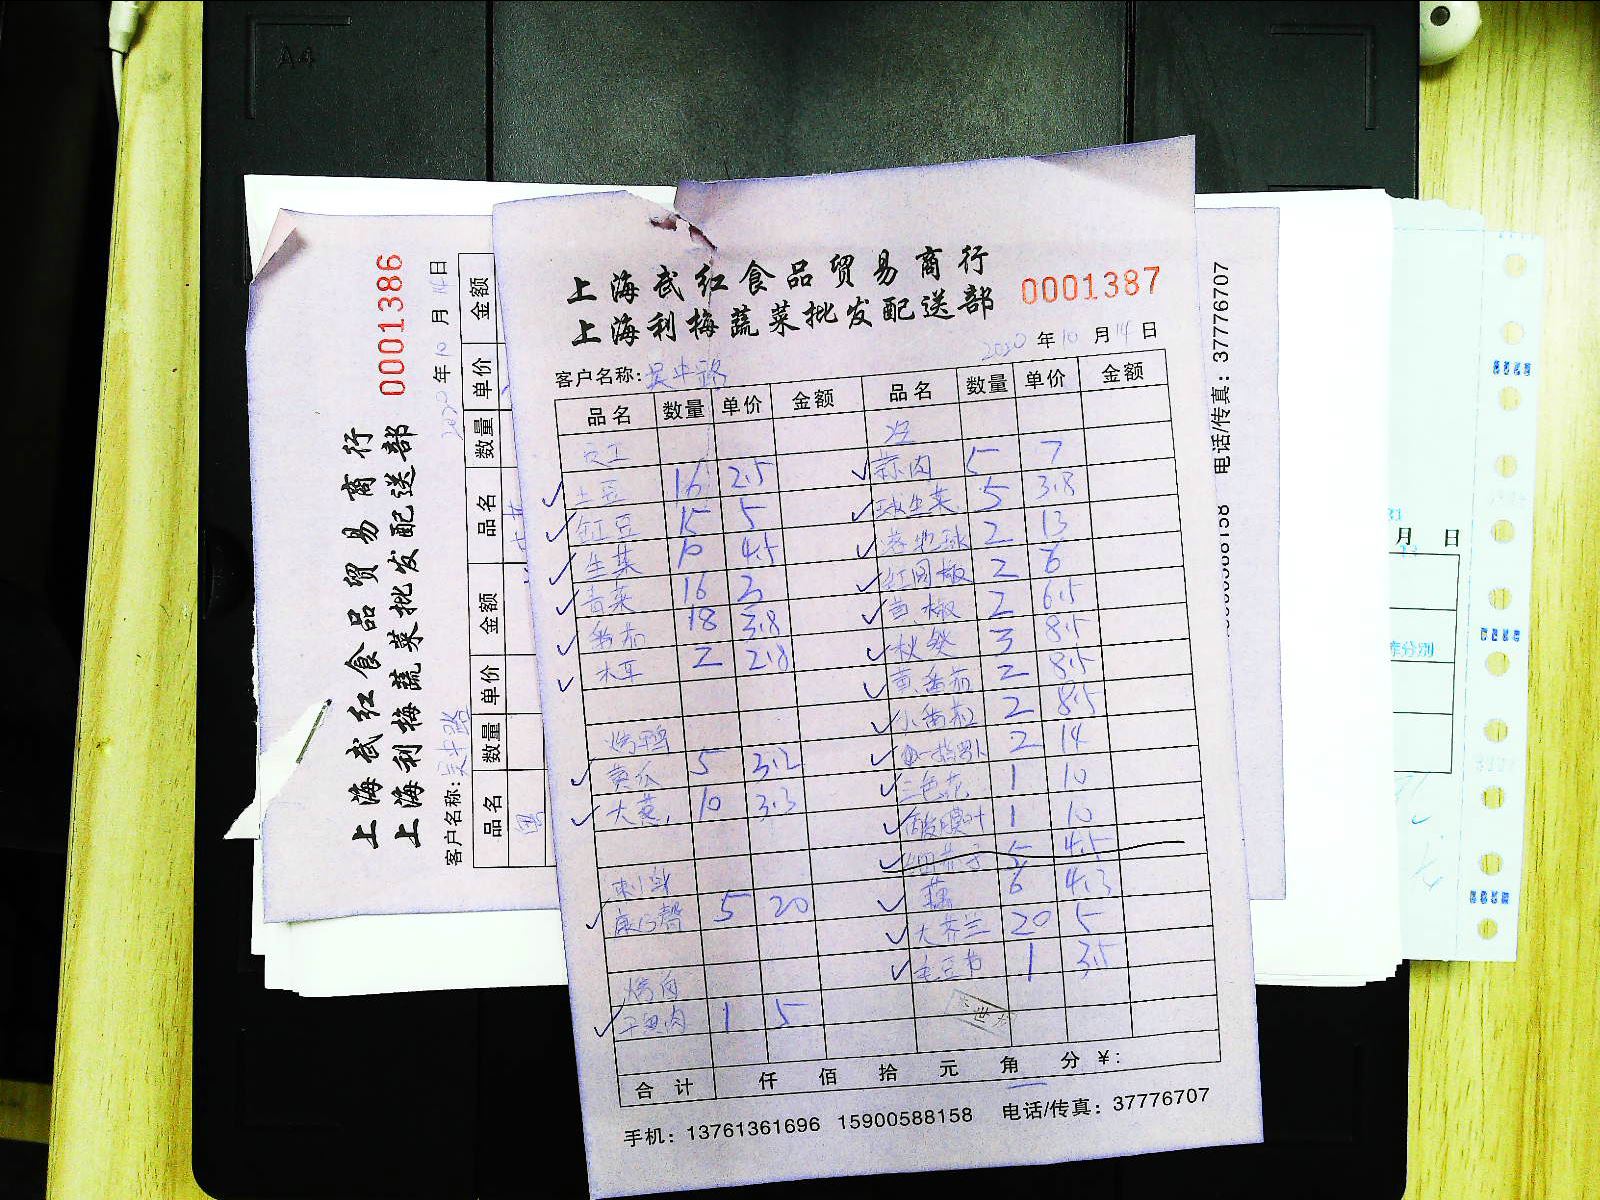 上海武红食品贸易商行
上海利梅蔬菜批发配送部
0001387
2020年10月14日
客户名称:吴中路
品名 数量 单价 金额 品名 数量 单价 金额
土豆 16 2.5 蒜肉 5 7
缸豆 15 5 球生菜 5 3.8
生菜 10 4.5 2 13
青菜 16 3 红圆椒 2 6
番茄 18 3.8 黄椒 2 6.5
木耳 2 2.8 秋葵 3 8.5
黄番茄 2 8.5
烤鸭 小番茄 2 8.5
黄瓜 5 3.2 2 14
大葱 10 3.3 三色花 1 10
1 10
刺身 5 4.5
5 20 藕 6 4.3
大芥兰 20 5
烤肉 毛豆节 1 3.5
1 5
合计 仟 佰 拾 元 角 分 ¥:
手机: 13761361696 15900588158 电话/传真: 37776707
上海武红食品贸易商行
上海利梅蔬菜批发配送部
0001386
2020年10月14日
客户名称:吴中路
品名 数量 单价 金额 品名 数量 单价 金额
电话/传真: 37776707
月 日
A4